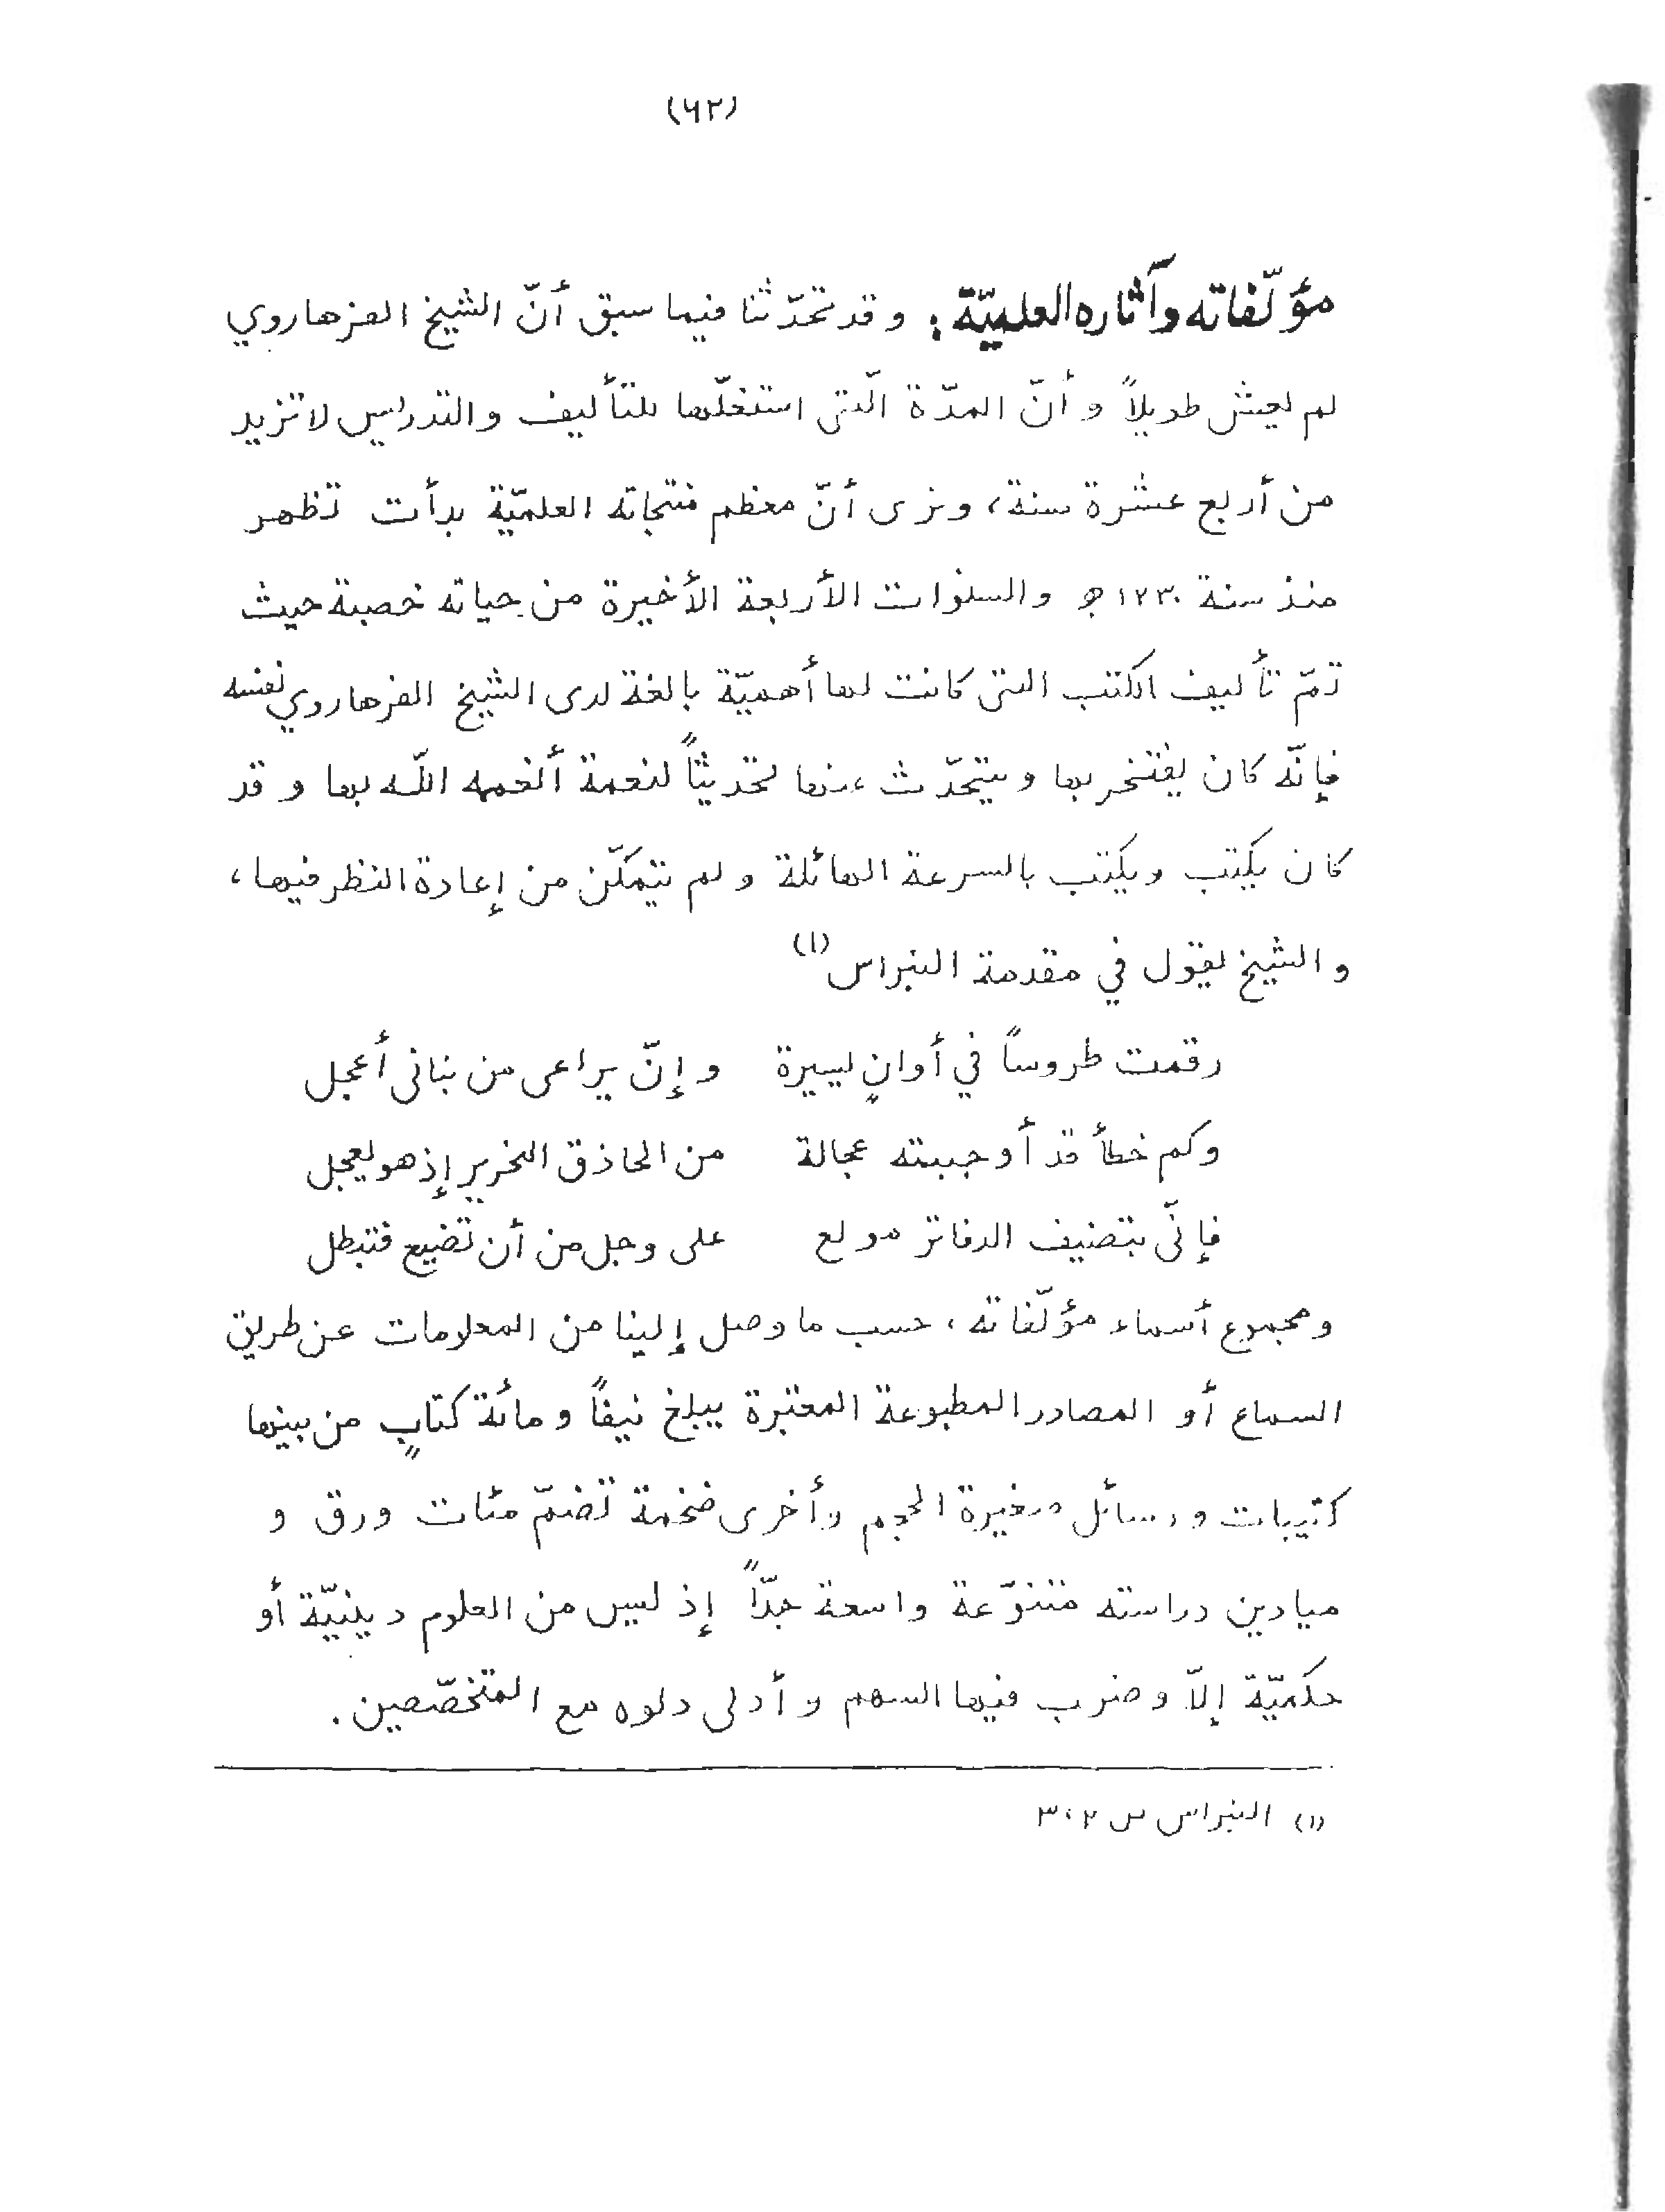 (٦٢)
مؤلّفاته وآثاره العلميّة: وقد تحدّثنا فيما سبق أنّ الشيخ الفرهاروي
لم يعش طويلاً وأنّ المدّة الّتي استغلّها للتأليف والتدريس لا تزيد
من أربع عشرة سنة، ونرى أنّ معظم منتجاته العلميّة بدأت تظهر
منذ سنة ١٢٣٠ﻫ والسنوات الأربعة الأخيرة من حياته خصبة حيث
تمّ تأليف الكتب التي كانت لها أهميّة بالغة لدى الشيخ الفرهاروي نفسه
فإنّه كان يفتخر بها ويتحدّث عنها تحديثاً لنعمة أنعمه اللّه بها وقد
كان يكتب ويكتب بالسرعة الهائلة ولم يتمكّن من إعادة النظر فيها،
والشيخ يقول في مقدمة النبراس (١)
رقمت طروساً في أوانٍ يسيرة وإنّ يراعى من بنانى أعجل
وكم خطأ قد أوجبته عجالة من الحاذق النحرير إذ هو يعجل
فإنّى بتصنيف الدفاتر مولع على وجل من أن تضيع فتبطل
ومجموع أسماء مؤلّفاته، حسب ما وصل إلينا من المعلومات عن طريق
السماع أو المصادر المطبوعة المعتبرة يبلغ نيفاً ومائة كتابٍ من بينها
كتيبات ورسائل صغيرة الحجم وأخرى ضخمة تضمّ مئات ورق و
ميادين دراسته متنوّعة واسعة جدّاً إذ ليس من العلوم دينيّة أو
حكميّة إلاّ وضرب فيها السهم وأدلى دلوه مع المتخصّصين.
(١) النبراس ص ٢، ٣